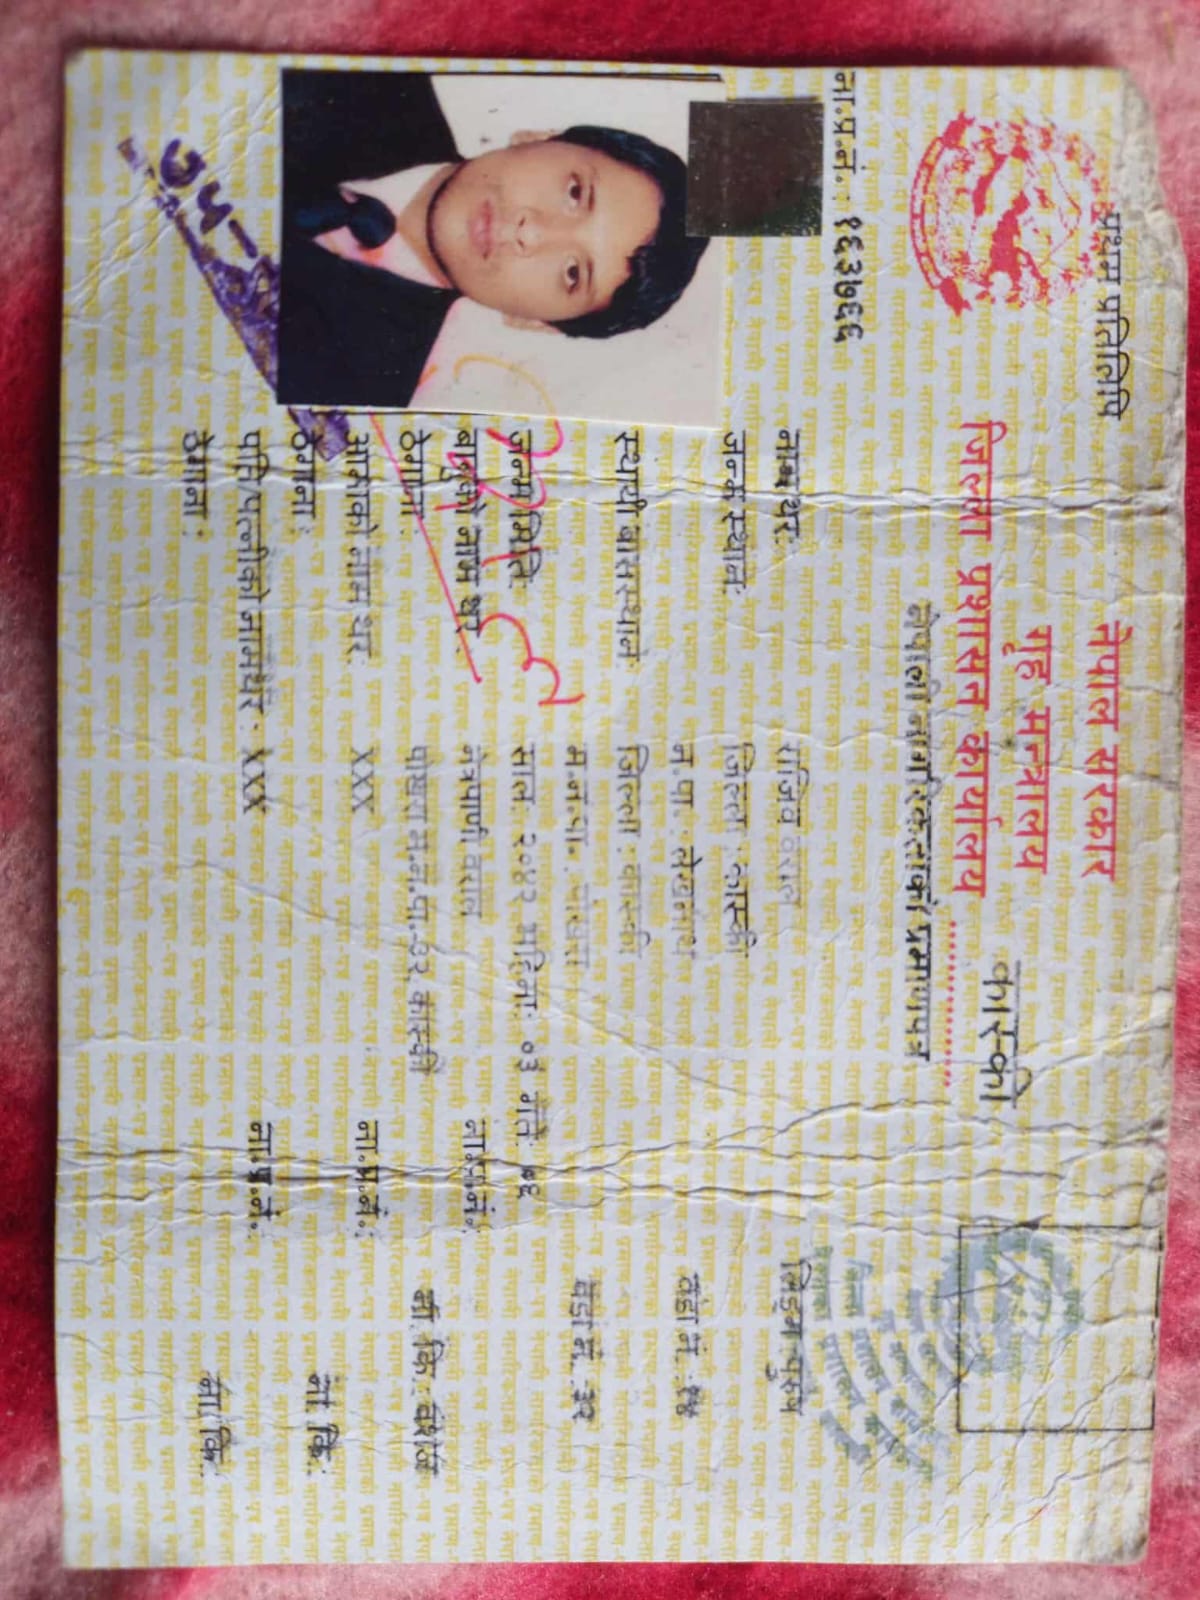 प्रथम प्रतिलिपि
नेपाल सरकार
गृह मन्त्रालय
जिल्ला प्रशासन कार्यालय कास्की
नेपाली नागरिकताको प्रमाणपत्र
ना.प्र.नं. : १६३७६६
नाम थर: राजिव वराल लिङ्ग : पुरुष
जन्म स्थान: जिल्ला : कास्की
न.पा : लेखनाथ वडा नं. : १४
स्थायी बासस्थान: जिल्ला : कास्की
म.न.पा. पोखरा वडा नं.: ३२
जन्म मिति: साल: २०४२ महिना: ०३ गते: ७६
बाबुको नाम थर: नेत्रपाणी वराल ना.प्र.नं.:
ठेगाना: पोखरा म.न.पा.-३२, कास्की नी. कि: वंशज
आमाको नाम थर: XXX ना.प्र.नं.:
ठेगाना: ना. कि:
पति/पत्नीको नाम थर: XXX ना.प्र.नं.:
ठेगाना: ना. कि: